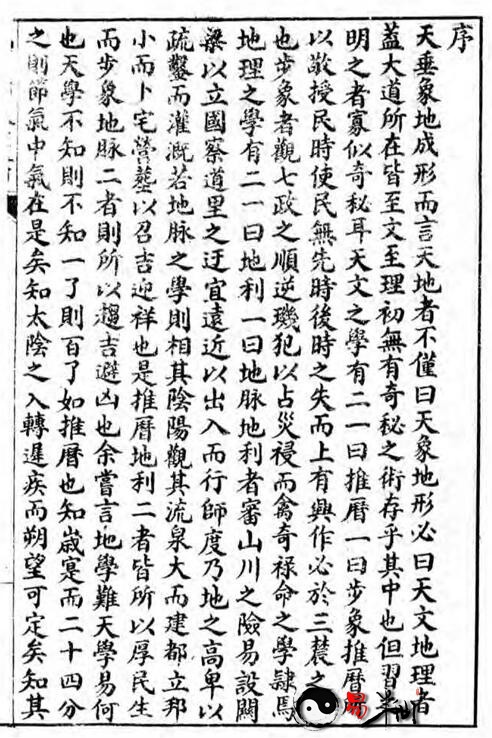 序
天垂象地成形而言天地者不僅曰天象地形必曰天文地理者
蓋大道所在皆至文至理初無有奇秘之術存乎其中也但習而
明之者寡似奇秘耳天文之學有二一曰推曆一曰步象推曆所
以敬授民時使民無先時後時之失而上有興作必於三農之
也步象者觀七政之順逆璣犯以占災祲而禽奇祿命之學隸焉
地理之學有二一曰地利一曰地脉地利者審山川之險易設關
梁以立國察道里之迂宜遠近以出入而行師度乃地之高卑以
疏鑿而灌溉若地脉之學則相其陰陽觀其流泉大而建都立邦
小而卜宅營塟以召吉迎祥也是推曆地利二者皆所以厚民生
而步象地脉二者則所以趨吉避凶也余嘗言地學難天學易何
也天學不知則不知一了則百了如推曆也知歲寔而二十四分
之則節氣中氣在是矣知太陰之入轉遲疾而朔望可定矣知其